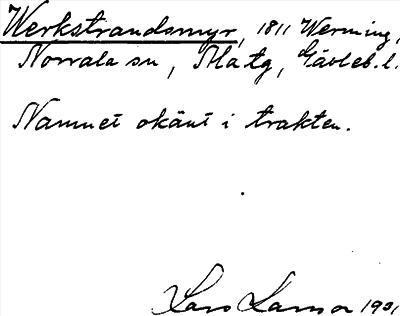 Werkstrandsmyr, 1811 Werming,
Norrala sn, Matg, Gävleb. l.
Namnet okänt i trakten.
Lars Larsson 1931